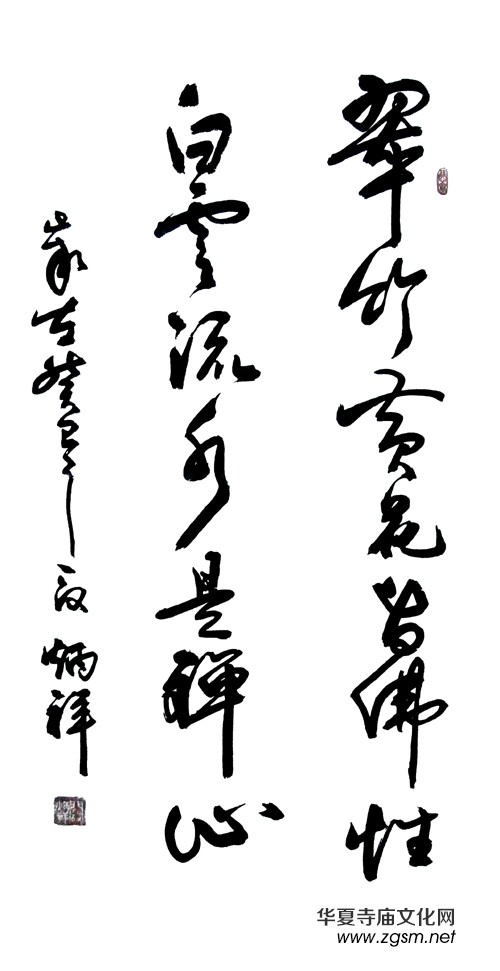 翠竹黄花皆佛性
白云流水是禅心
岁在癸巳之
炳祥
华夏寺庙文化网
www.zgsm.net